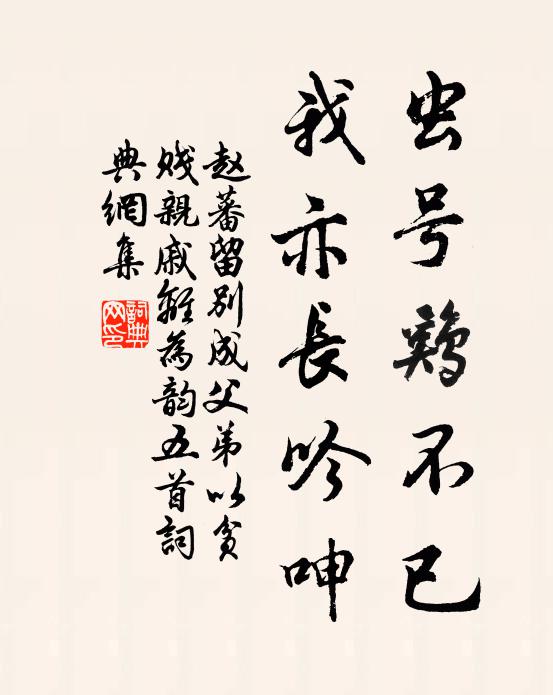 虫号鷄不已
我亦長吟呻
赵蕃留别成父弟以贫
贱親戚離為韵五首詞
典網集
詞典網印